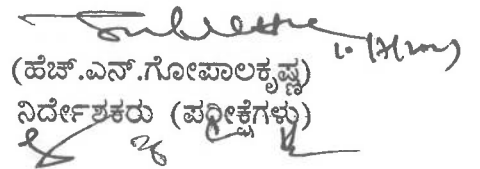 (ಹೆಚ್.ಎನ್.ಗೋಪಾಲಕೃಷ್ಣ)
ನಿರ್ದೇಶಕರು (ಪರೀಕ್ಷೆಗಳು)